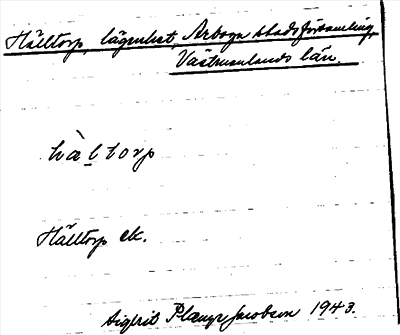 Hälltorp, lägenhet, Arboga stadsförsamling,
Västmanlands län.
hàltorp
Hälltorp ek.
Sigfrid Planyr Jacobson 1943.